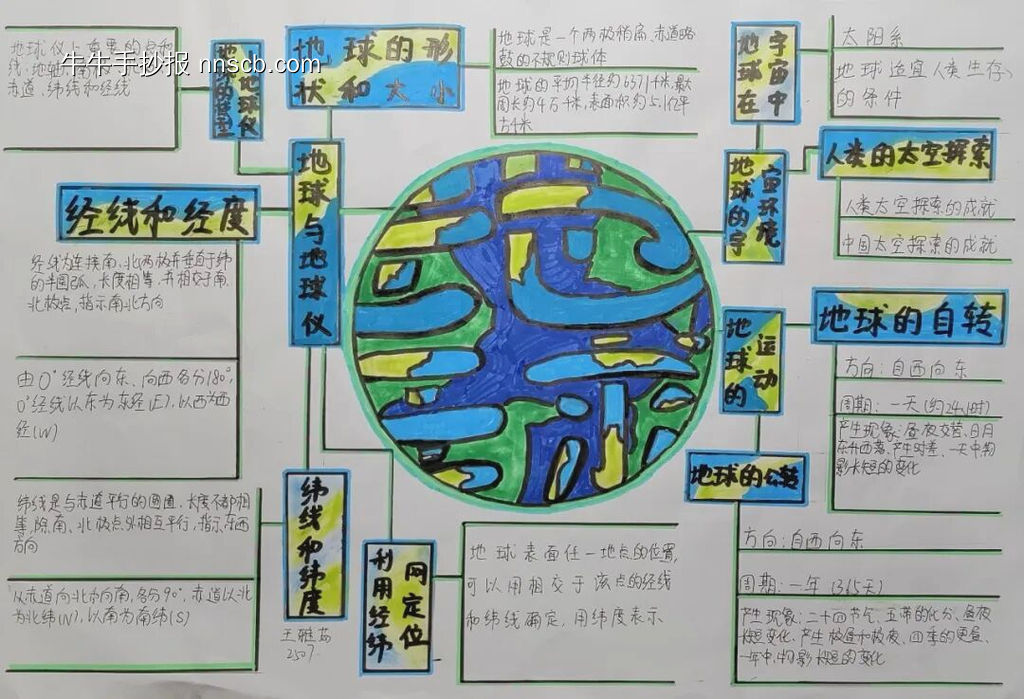 牛牛手抄报 nnscb.com
地球仪上重要的点和
线:地轴、南极、北
赤道、纬线和经线
地球的形
状和大小
地球是一个两极稍扁、赤道略
鼓的不规则球体
地球的平均半径约6371千米,最大
周长约4万千米,表面积约5.1亿平
方千米
地球在
宇宙中
太阳系
地球适宜人类生存
的条件
地球的宇
宙环境
人类的太空探索
人类太空探索的成就
中国太空探索的成就
地球与地球仪
经线和经度
经线为连接南、北两极并垂直于纬
的半圆弧,长度相等,并相交于南、
北极点,指示南北方向
由0°经线向东、向西各分180°,
0°经线以东为东经(E),以西为西
经(W)
地球的
运动
地球的自转
方向:自西向东
周期:一天(约24小时)
产生现象:昼夜交替、日月
东升西落、产生时差、一天中物
影长短的变化
地球的公转
方向:自西向东
周期:一年(365天)
产生现象:二十四节气、五带的化分、昼夜
长短变化、产生极昼和极夜、四季的更叠、
一年中,物影长短的变化
纬线和纬度
纬线是与赤道平行的圆圈,长度不都相
等,除南、北极点外相互平行,指示东西
方向
从赤道向北向南,各分90°,赤道以北
为北纬(N),以南为南纬(S)
利用经纬
网定位
地球表面任一地点的位置,
可以用相交于该点的经线
和纬线确定,用纬度表示
2507